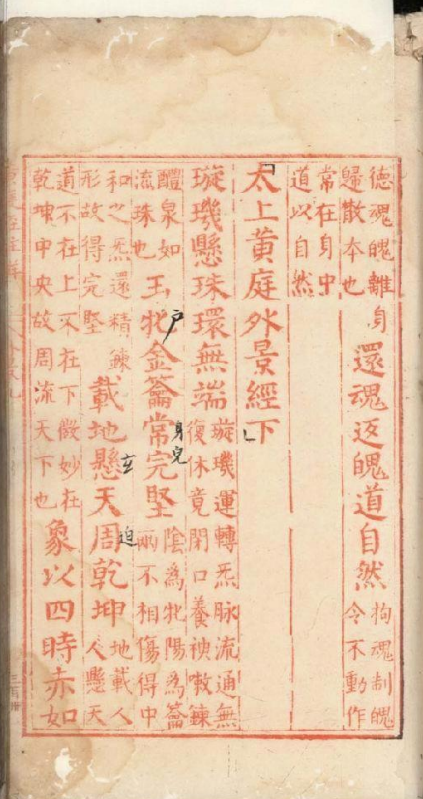 德魂魄離身
歸散本也
還魂返魄道自然
拘魂制魄
令不動作
常在身中
道以自然
太上黃庭外景經下
璇璣懸珠環無端
璇璣運轉炁脉流通無
復休竟閉口養神嗽鍊
醴泉如
流珠也
玉牝金籥常完堅
戶
身完
陰為牝陽為籥
兩不相傷得中
和之炁還精鍊
形故得完堅
載地懸天周乾坤
玄
迫
地載人
人懸天
道不在上不在下微妙在
乾坤中央故周流天下也
象以四時赤如